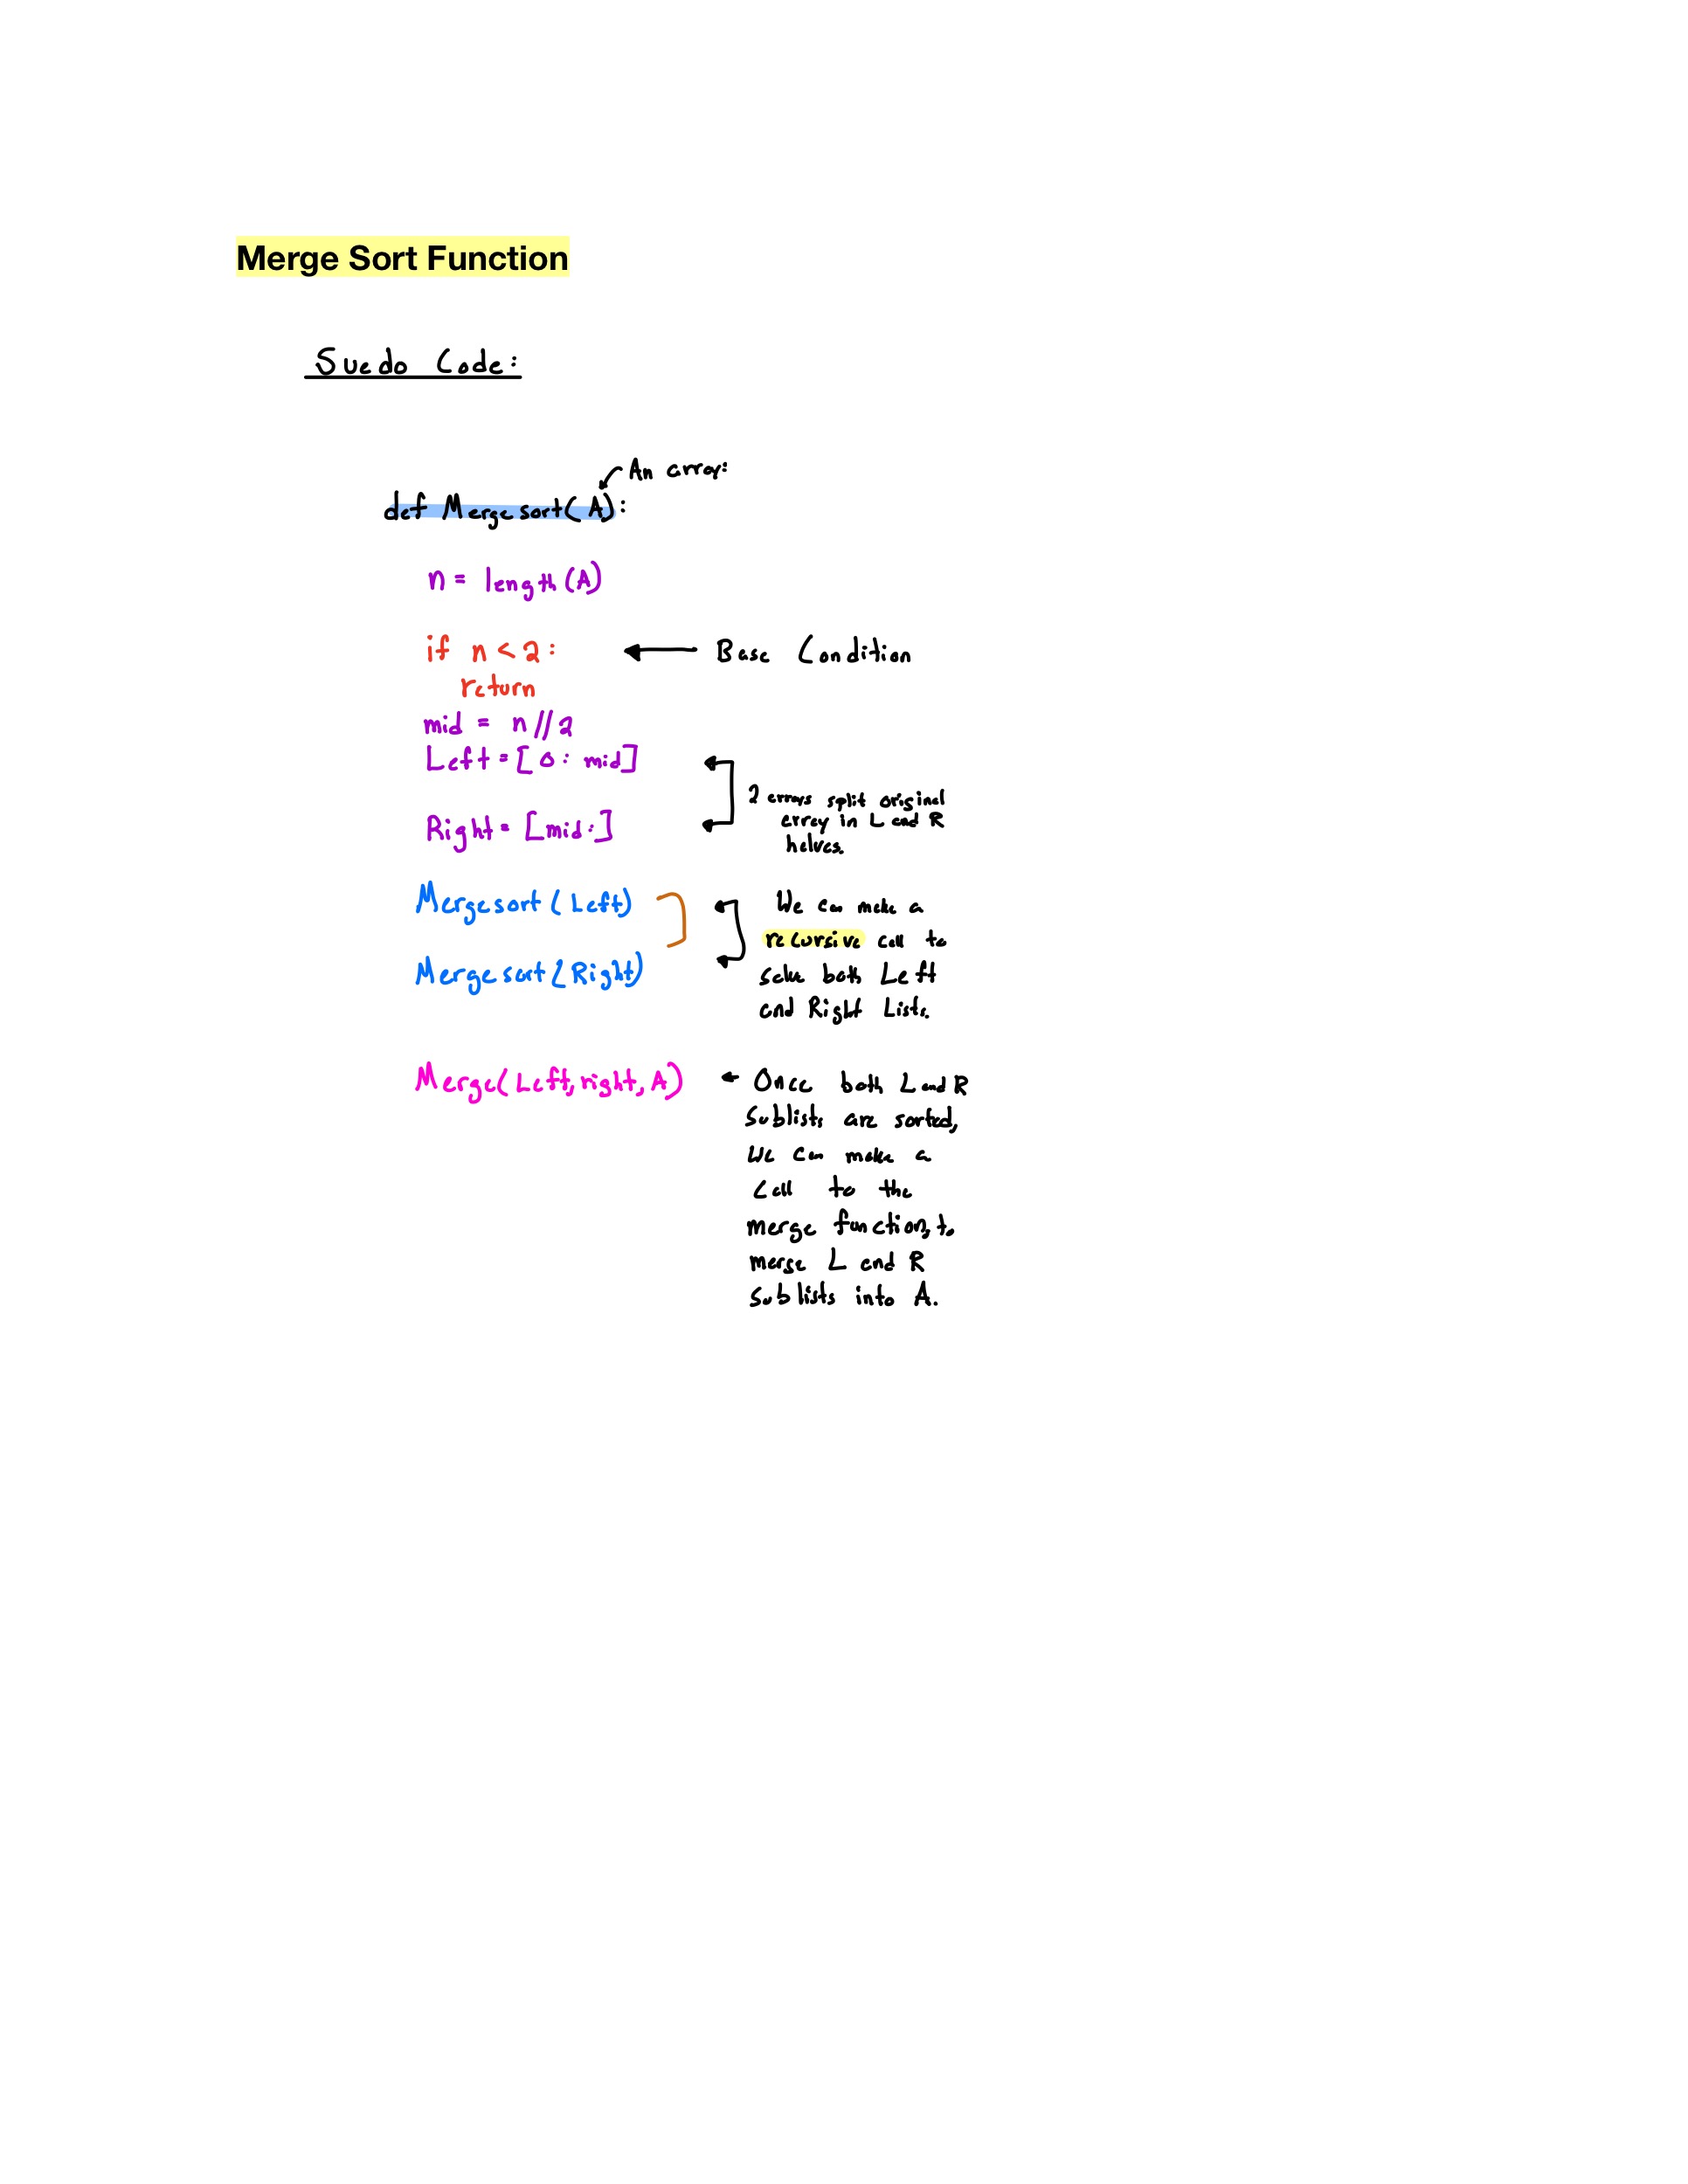 Merge Sort Function
Suedo Code:
An array:
def Mergesort(A):
n = length(A)
if n < 2: ← Base Condition
return
mid = n//2
Left = [0: mid]
2 arrays split original
array in L and R
halves.
Right = [mid:]
Mergesort(Left)
We can make a
recursive call to
solve both Left
and Right Lists.
Mergesort(Right)
Merge(Left, right, A) ← Once both L and R
Sublists are sorted,
we can make a
call to the
merge function, to
merge L and R
sublists into A.